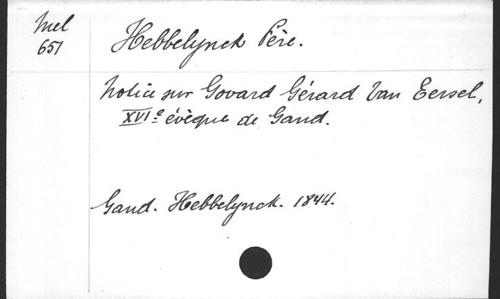 Mel
651
Hebbelynck Père.
Notice sur Govard Gérard Van Eersel,
XVIe évêque de Gand.
Gand. Hebbelynck. 1844.